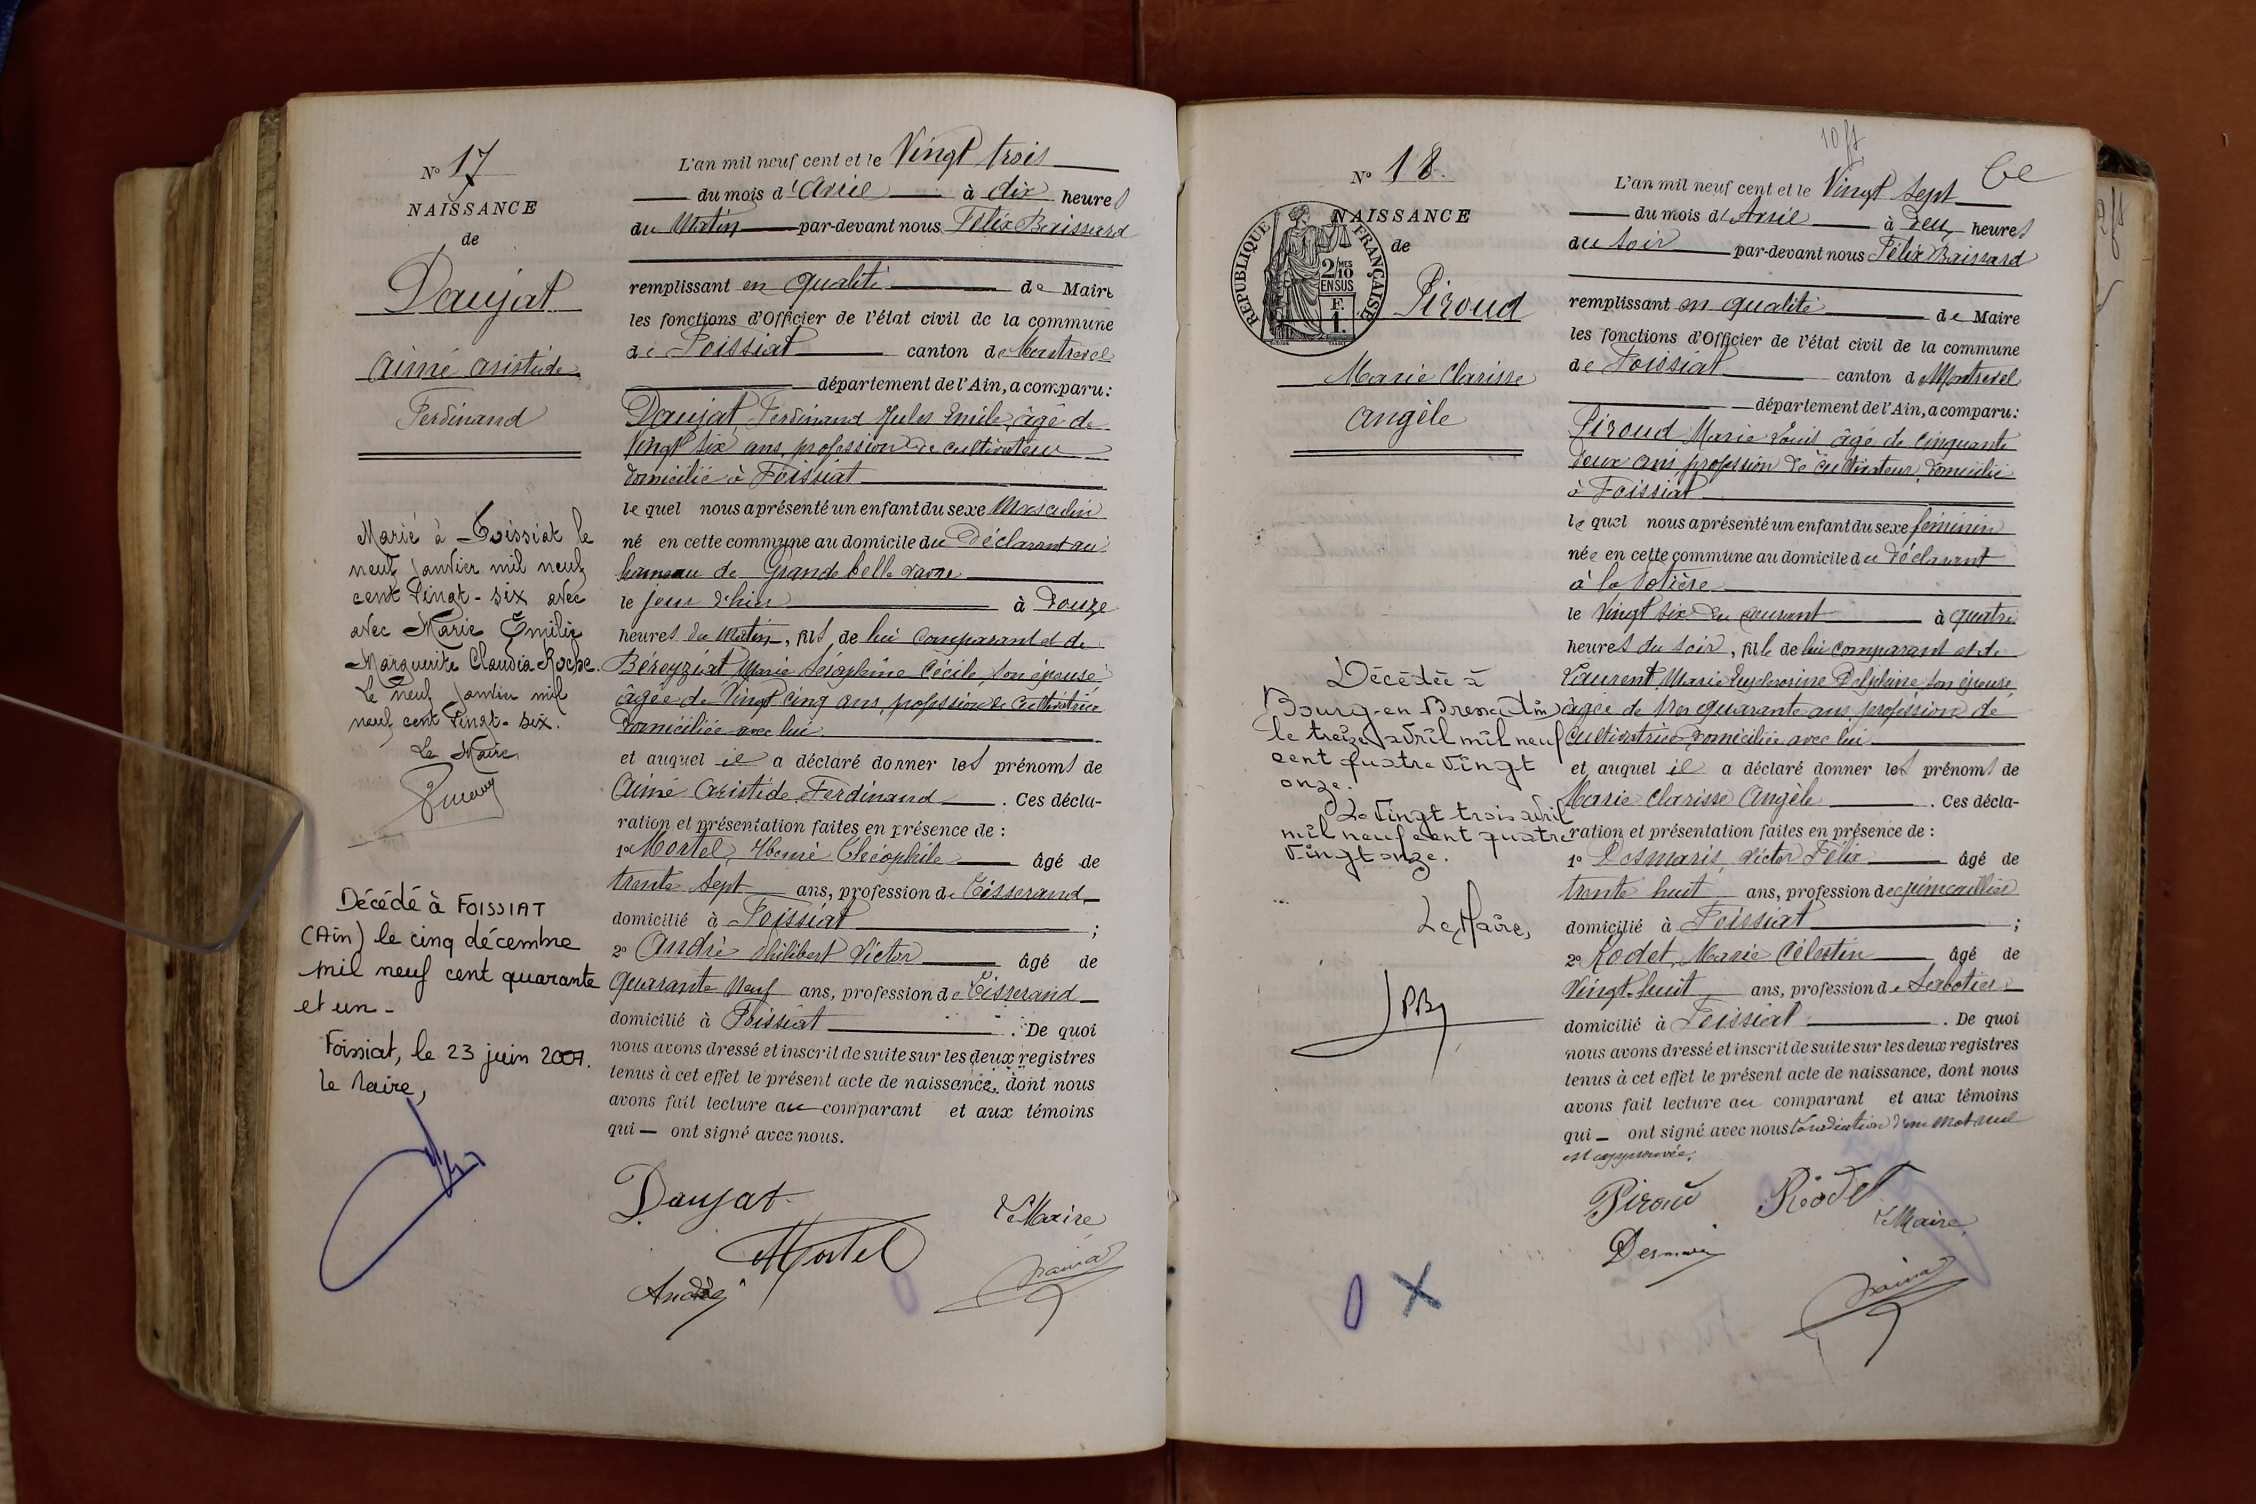 N° 17
NAISSANCE
de
Daujat
Aimé Aristide
Ferdinand
Marié à Foissiat le
neuf janvier mil neuf
cent vingt-six avec
avec Marie Emilie
Marguerite Claudia Roche.
Le neuf janvier mil
neuf cent vingt-six.
Le Maire
Décédé à FOISSIAT
(Ain) le cinq décembre
mil neuf cent quarante
et un -
Foissiat, le 23 juin 2007.
le Maire,
L'an mil neuf cent et le Vingt trois
du mois d'Avril à dix heures
du Matin par-devant nous Félix Baissard
remplissant en qualité de Maire
les fonctions d'Officier de l'état civil de la commune
de Foissiat canton de Montrevel
département de l'Ain, a comparu:
Daujat, Ferdinand Jules Emile, âgé de
vingt six ans, profession de cultivateur
domicilié à Foissiat
le quel nous a présenté un enfant du sexe Masculin
né en cette commune au domicile du Déclarant au
hameau de Grande belle vavre
le jour d'hier à Douze
heures du Matin, fils de lui comparant et de
Béreyziat, Marie Séraphine Cécile, son épouse
âgée de Vingt cinq ans, profession de Cultivatrice
domiciliée avec lui
et auquel il a déclaré donner les prénoms de
Aimé Aristide Ferdinand . Ces décla-
ration et présentation faites en présence de :
1° Mortel, Henri Théophile âgé de
trente sept ans, profession de Tisserand
domicilié à Foissiat ;
2° André Philibert Victor âgé de
Quarante Neuf ans, profession de Tisserand
domicilié à Foissiat . De quoi
nous avons dressé et inscrit de suite sur les deux registres
tenus à cet effet le présent acte de naissance, dont nous
avons fait lecture au comparant et aux témoins
qui — ont signé avec nous.
Daujat
Le Maire
Mortel
André
N° 18.
NAISSANCE
de
REPUBLIQUE FRANÇAISE
2/10 MES
EN SUS
F.
1.
Piroud
Marie Clarisse
Angèle
Décédée à
Bourg-en-Bresse (Ain)
le treize avril mil neuf
cent quatre vingt
onze.
Le vingt trois avril
mil neuf cent quatre
vingt onze.
Le Maire,
L'an mil neuf cent et le Vingt sept
du mois d'Avril à Deux heures
du Soir par-devant nous Félix Baissard
remplissant en qualité de Maire
les fonctions d'Officier de l'état civil de la commune
de Foissiat canton de Montrevel
département de l'Ain, a comparu:
Piroud Marie Louis âgé de cinquante
deux ans profession de cultivateur, domicilié
à Foissiat
le quel nous a présenté un enfant du sexe féminin
née en cette commune au domicile du déclarant
le Vingt six du courant à quatre
heures du soir, fille de lui comparant et de
Laurent, Marie Delphine son épouse
âgée de quarante ans, profession de
cultivatrice domiciliée avec lui
et auquel il a déclaré donner les prénoms de
Marie Clarisse Angèle . Ces décla-
ration et présentation faites en présence de :
1° Desmaris, Victor Félix âgé de
trente huit ans, profession de quincaillier
domicilié à Foissiat ;
2° Rodet, Marie Célestin âgé de
Vingt-huit ans, profession de Sabotier
domicilié à Foissiat . De quoi
nous avons dressé et inscrit de suite sur les deux registres
tenus à cet effet le présent acte de naissance, dont nous
avons fait lecture au comparant et aux témoins
qui — ont signé avec nous la radiation d'un mot nul
est approuvée.
Piroud Rodet
Le Maire